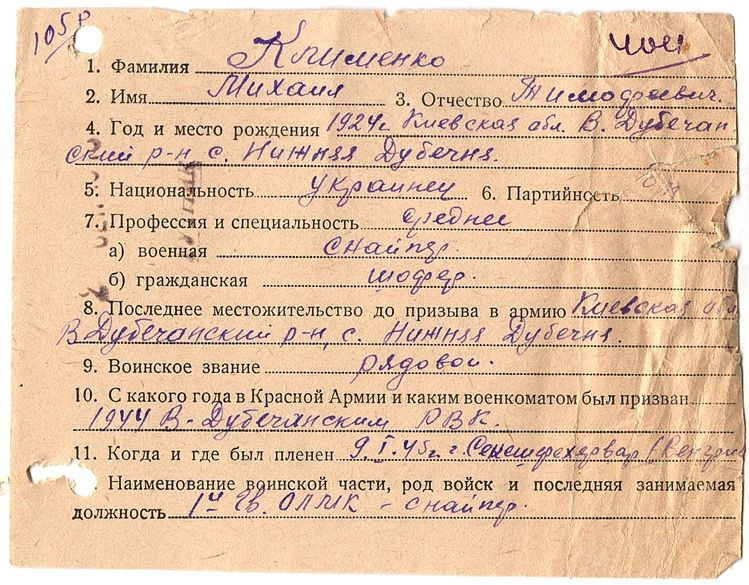 105р
1. Фамилия Клименко
2. Имя Михаил 3. Отчество Тимофеевич.
4. Год и место рождения 1924г Киевская обл. В. Дубечан
ский р-н с. Нижняя Дубечня.
5. Национальность украинец 6. Партийность б/п
7. Профессия и специальность среднее
а) военная снайпер.
б) гражданская шофер.
8. Последнее местожительство до призыва в армию Киевская обл
В Дубечанский р-н, с. Нижняя Дубечня.
9. Воинское звание рядовой.
10. С какого года в Красной Армии и каким военкоматом был призван
1944 В-Дубечанским РВК.
11. Когда и где был пленен 9.I.45г. г. Секешфехервар (Венгрия
Наименование воинской части, род войск и последняя занимаемая
должность 1й Гв. - снайпер.